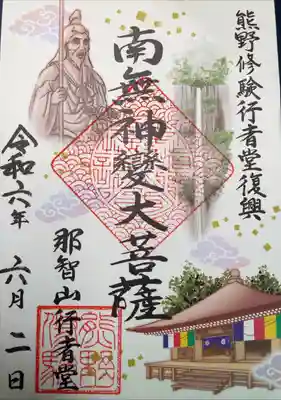 熊野修験行者堂復興
南無神變大菩薩
那智山行者堂
令和六年 六月二日